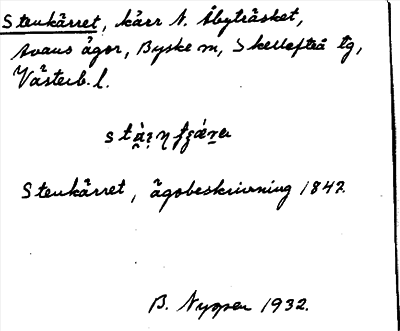 Stenkärret, kärr N. Åbyträsket,
Avaus ägor, Byske sn, Skellefteå tg,
Västerb. l.
Stenkärret, ägobeskrivning 1842
B. Nygren 1932.